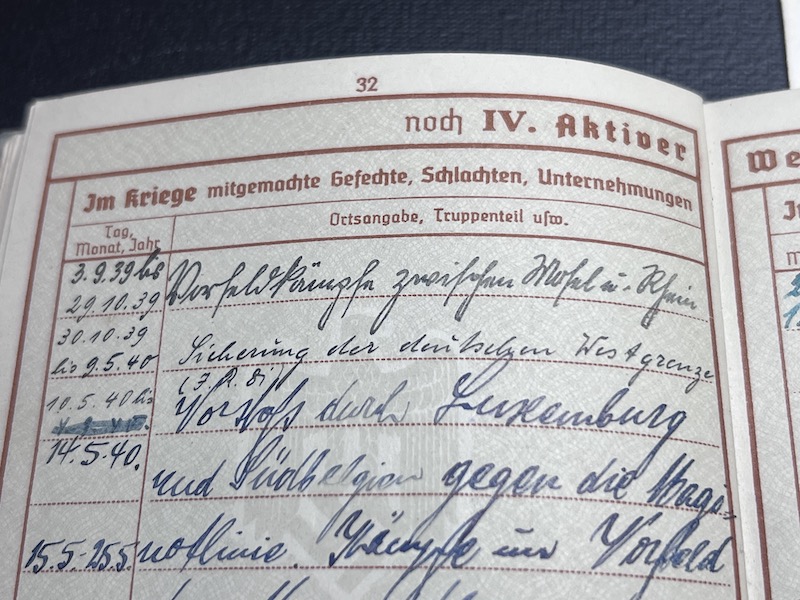 32
noch IV. Aktiver
We
Im Kriege mitgemachte Gefechte, Schlachten, Unternehmungen
Tag, Monat, Jahr
Ortsangabe, Truppenteil usw.
3.9.39 bis Vorfeldkämpfe zwischen Mosel u. Rhein
29.10.39
30.10.39
bis 9.5.40 Sicherung der deutschen Westgrenze
10.5.40 bis Vorstoß durch Luxemburg
14.5.40. und Südbelgien gegen die Magi-
15.5.-25.5. notlinie. Kämpfe im Vorfeld